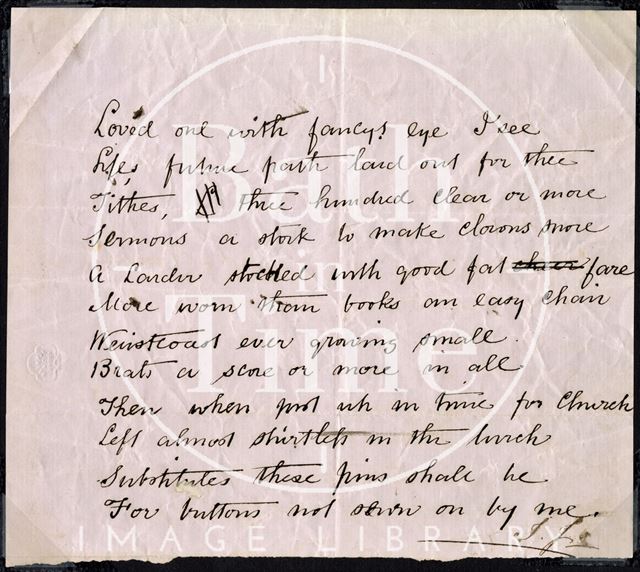 Loved one with fancys eye I see
Lifes future path laid out for thee
Tithes, three hundred clear or more
Sermons a stock to make clowns snore
A Larder stocked with good fat fare
More worn than books an easy chair
Waistcoast ever growing small.
Brats a score or more in all
Then when just up in time for Church
Left almost shirtless in the lurch
Substitutes these pins shall be
For buttons not sewn on by me.
Bath
in
Time
IMAGE LIBRARY